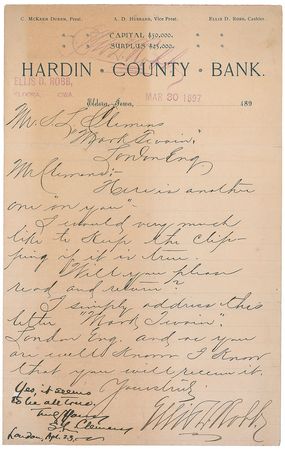 C. McKeen Duren, Prest. A. D. Hubbard, Vice Prest. Ellis D. Robb, Cashier.
CAPITAL $50,000.
SURPLUS $25,000.
HARDIN COUNTY BANK.
ELLIS D. ROBB,
ELDORA, IOWA.
Eldora, Iowa, MAR 30 1897 189
Mr. S. L. Clemens
"Mark Twain",
London Eng
Mr Clemens:-
Here is another
one "on you"
I would very much
like to keep the clip-
ping if it is true.
Will you please
read and return?
I simply address this
letter "Mark Twain",
London Eng. and as you
are well known I know
that you will receive it.
Yours truly,
Ellis D. Robb
Yes, it seems
to be all true.
Truly Yours
S L Clemens
London, Apl. 23,